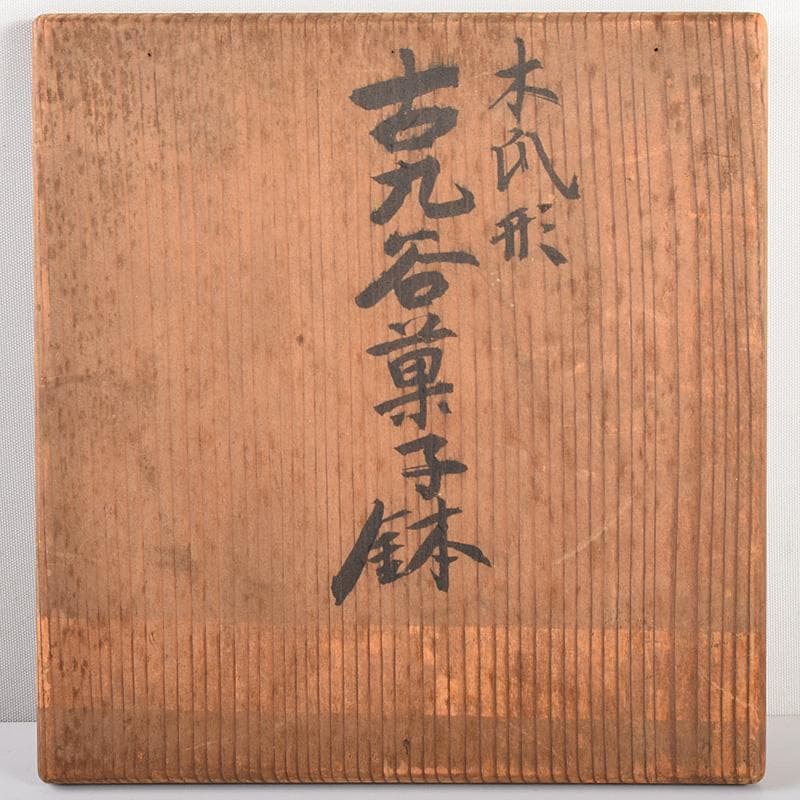 木瓜形
古九谷菓子鉢